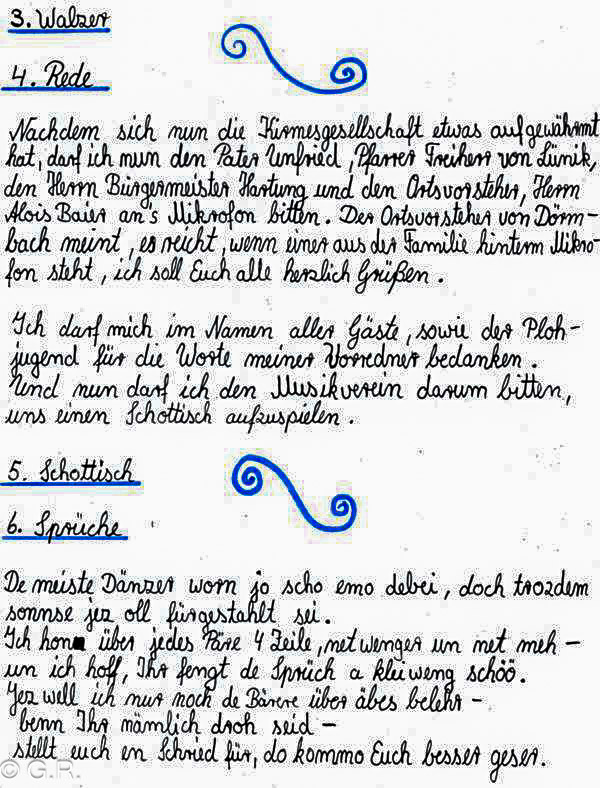 3. Walzer
4. Rede
Nachdem sich nun die Kirmesgesellschaft etwas aufgewährmt
hat, darf ich nun den Pater Unfried, Pfarrer Freiherr von Lünik,
den Herrn Bürgermeister Hartung und den Ortsvorsteher, Herrn
Alois Baier an's Mikrofon bitten. Der Ortsvorsteher von Dörm-
bach meint, es reicht, wenn einer aus der Familie hinterm Mikro-
fon steht, ich soll Euch alle herzlich Grüßen.
Ich darf mich im Namen aller Gäste, sowie der Ploh-
jugend für die Worte meiner Vorredner bedanken.
Und nun darf ich den Musikverein darum bitten,
uns einen Schottisch aufzuspielen.
5. Schottisch
6. Sprüche
De meiste Dänzer worn jo scho emo debei, doch trozdem
sonnse jez oll fürgestahlt sei.
Ich hon über jedes Päre 4 Zeile, net wenger un net meh -
un ich hoff, Ihr fengt de Sprüch a klei weng schöö.
Jez well ich nur noch de Bärere über äbes belehr -
benn Ihr nämlich droh seid -
stellt euch en Schried für, do kommo Euch besser geser.
© G.R.